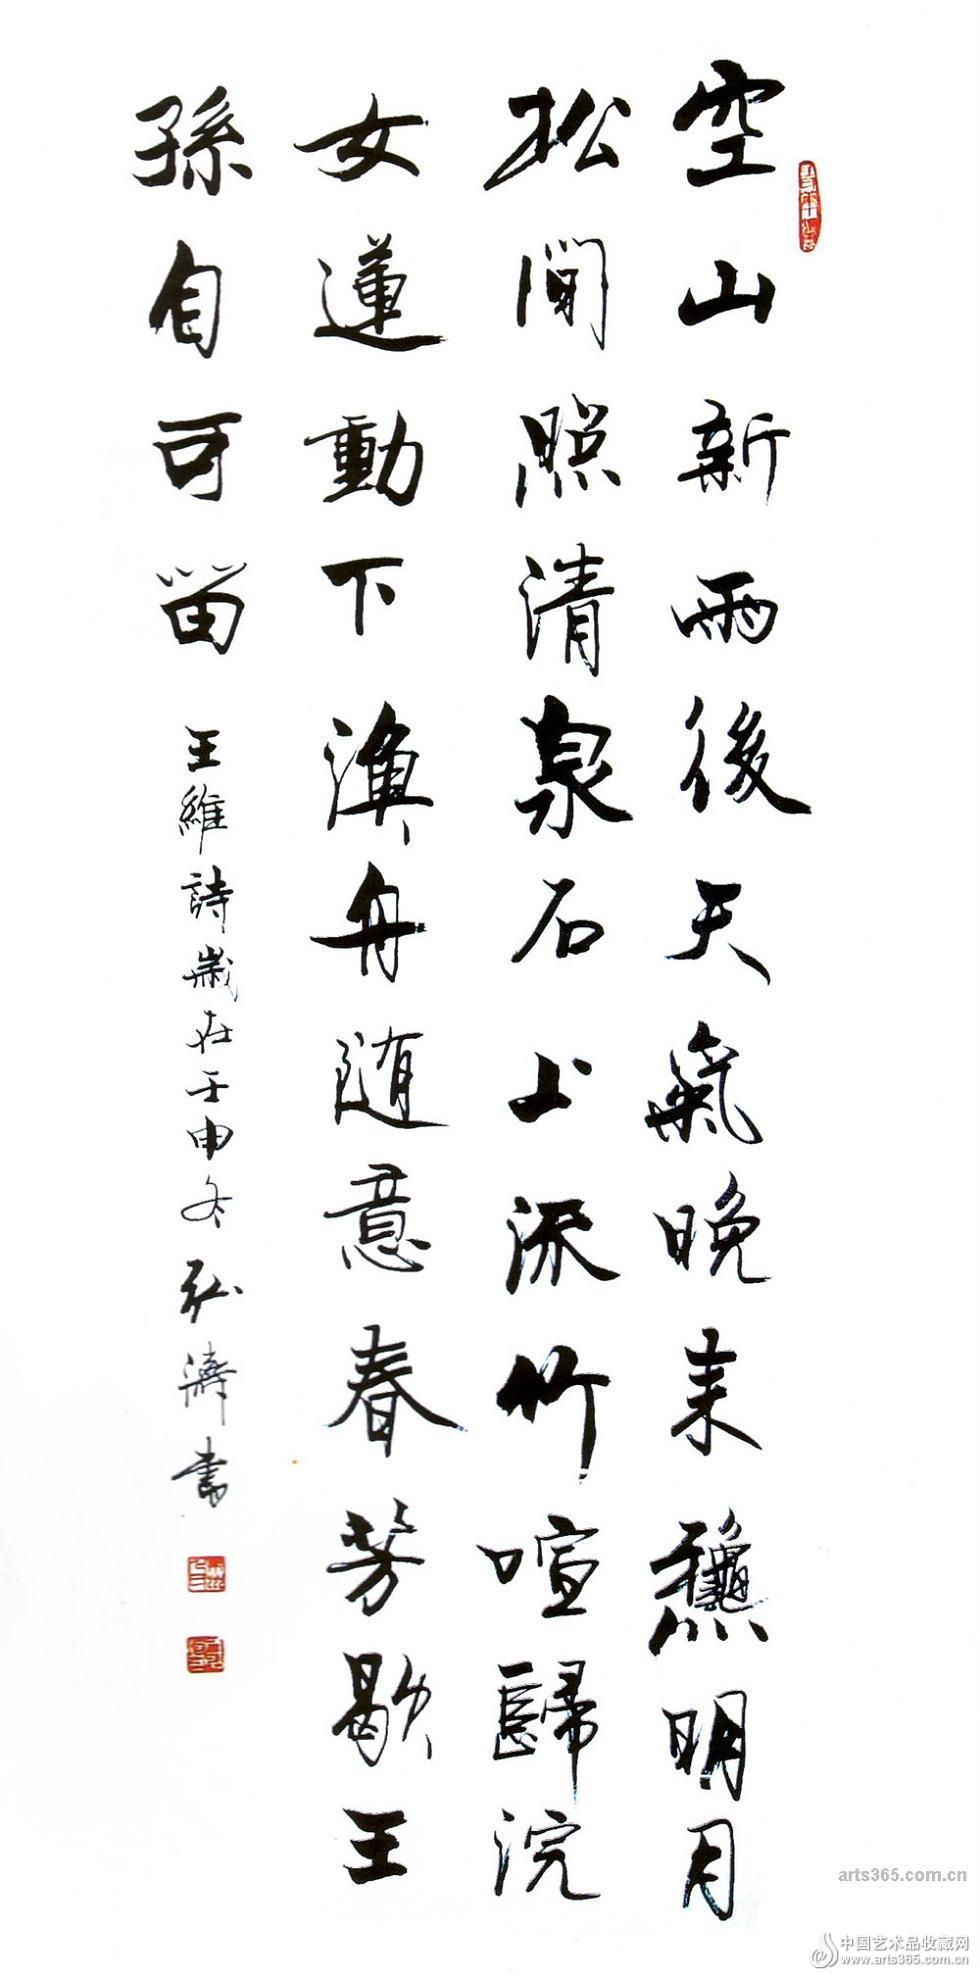 空山新雨後天氣晚来龝明月
松間照清泉石上流竹喧歸浣
女蓮動下漁舟随意春芳歇王
孫自可留
王維詩歲在壬申冬弘濤書
arts365.com.cn
中国艺术品收藏网
www.arts365.com.cn